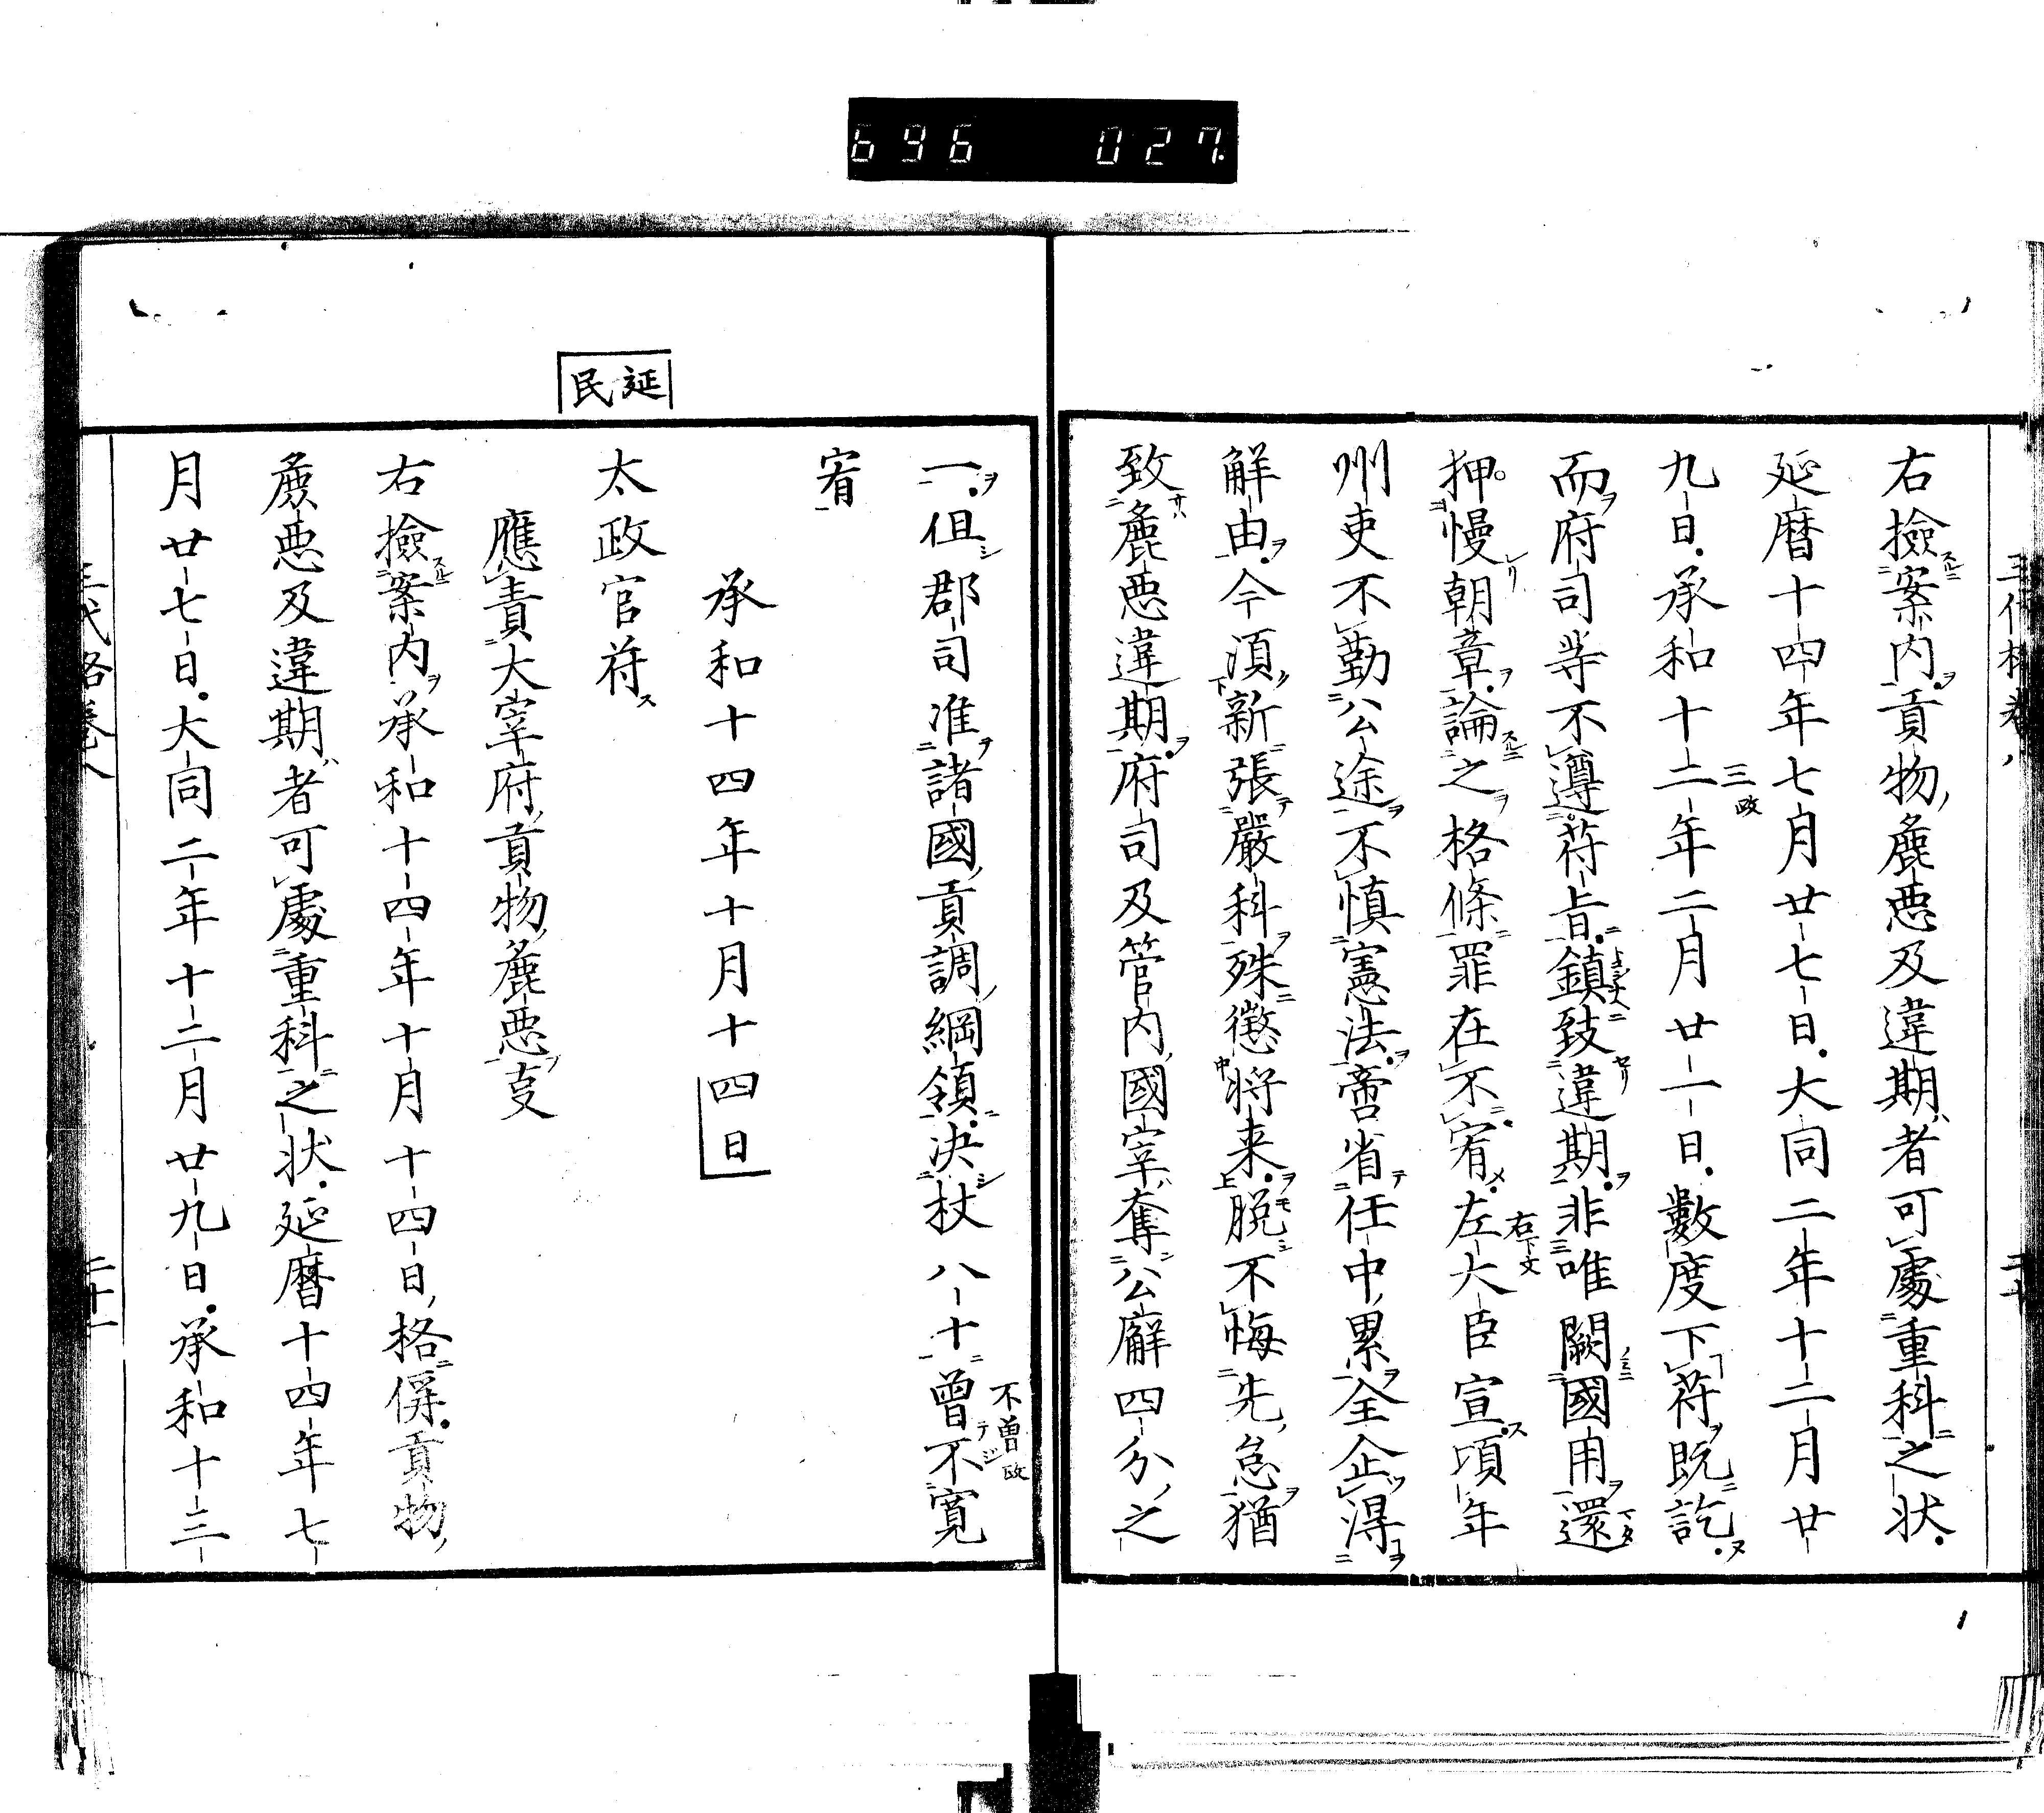 696 027
右撿案内貢物麁悪及違期者可處重科之状
延暦十四年七月廿七日大同二年十二月廿
九日承和十二年二月廿一日數度下苻既訖
三政
而府司等不遵苻旨鎮致違期非唯闕國用還
狎慢朝章論之格條罪在不宥左大臣宣頃年
右下文
州吏不勤公途不慎憲法嗇省任中累全企得
解由今湏新張嚴科殊懲将来脱不悔先怠猶
致麁悪違期府司及管内國宰奪公廨四分之
一但郡司准諸國貢調綱領決杖八十曽不寛
不曽政
宥
承和十四年十月十四日
民延
太政官苻
應責大宰府貢物麁悪㕝
右撿案内承和十四年十月十四日格偁貢物
麁悪及違期者可處重科之状延暦十四年七
月廿七日大同二年十二月廿九日承和十三
三代格巻八
二十一